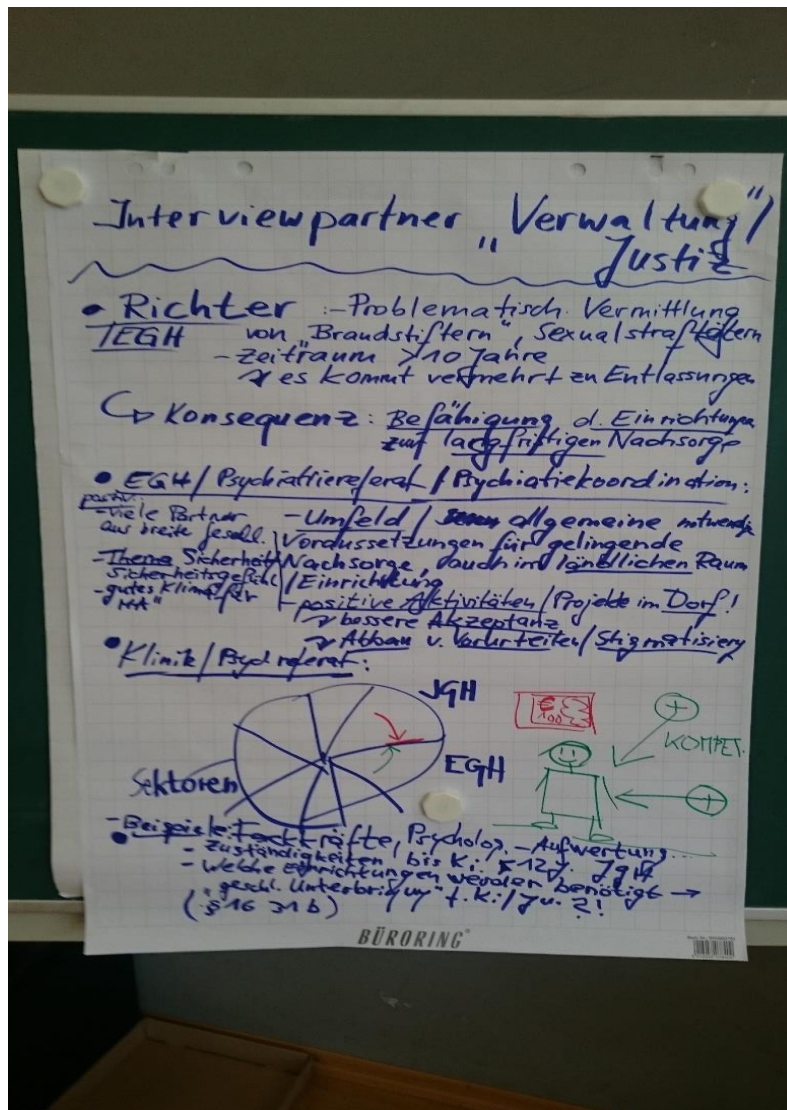 Interviewpartner „Verwaltung"/
Justiz
• Richter :- Problematisch Vermittlung
/EGH von „Brandstiftern", Sexualstraftätern
- Zeitraum >10 Jahre
es kommt vermehrt zu Entlassungen
Konsequenz: Befähigung d. Einrichtungen
zur langfristigen Nachsorge
• EGH / Psychiatriereferat / Psychiatiekoordination:
positiv:
- viele Partner
aus breite Gesell.
- Thema Sicherheit/
Sicherheitsgefühl
- gutes Klima für
"MA"
- Umfeld / allgemeine notwendige
Voraussetzungen für gelingende
Nachsorge, auch im ländlichen Raum
/ Einrichtung
- positive Aktivitäten / Projekte im Dorf!
bessere Akzeptanz
Abbau v. Vorurteilen / Stigmatisierg
• Klinik / Psychreferat:
JGH
EGH
Sektoren
€
100
KOMPET.
+
+
- Beispiele: Fachkräfte, Psycholog. - Aufwertung...
- Zuständigkeiten bis Ki. 12J.
- Welche Einrichtungen werden benötigt →
"geschl. Unterbringung" f. Ki./Ju. ?!
(§16 31b)
BÜRORING